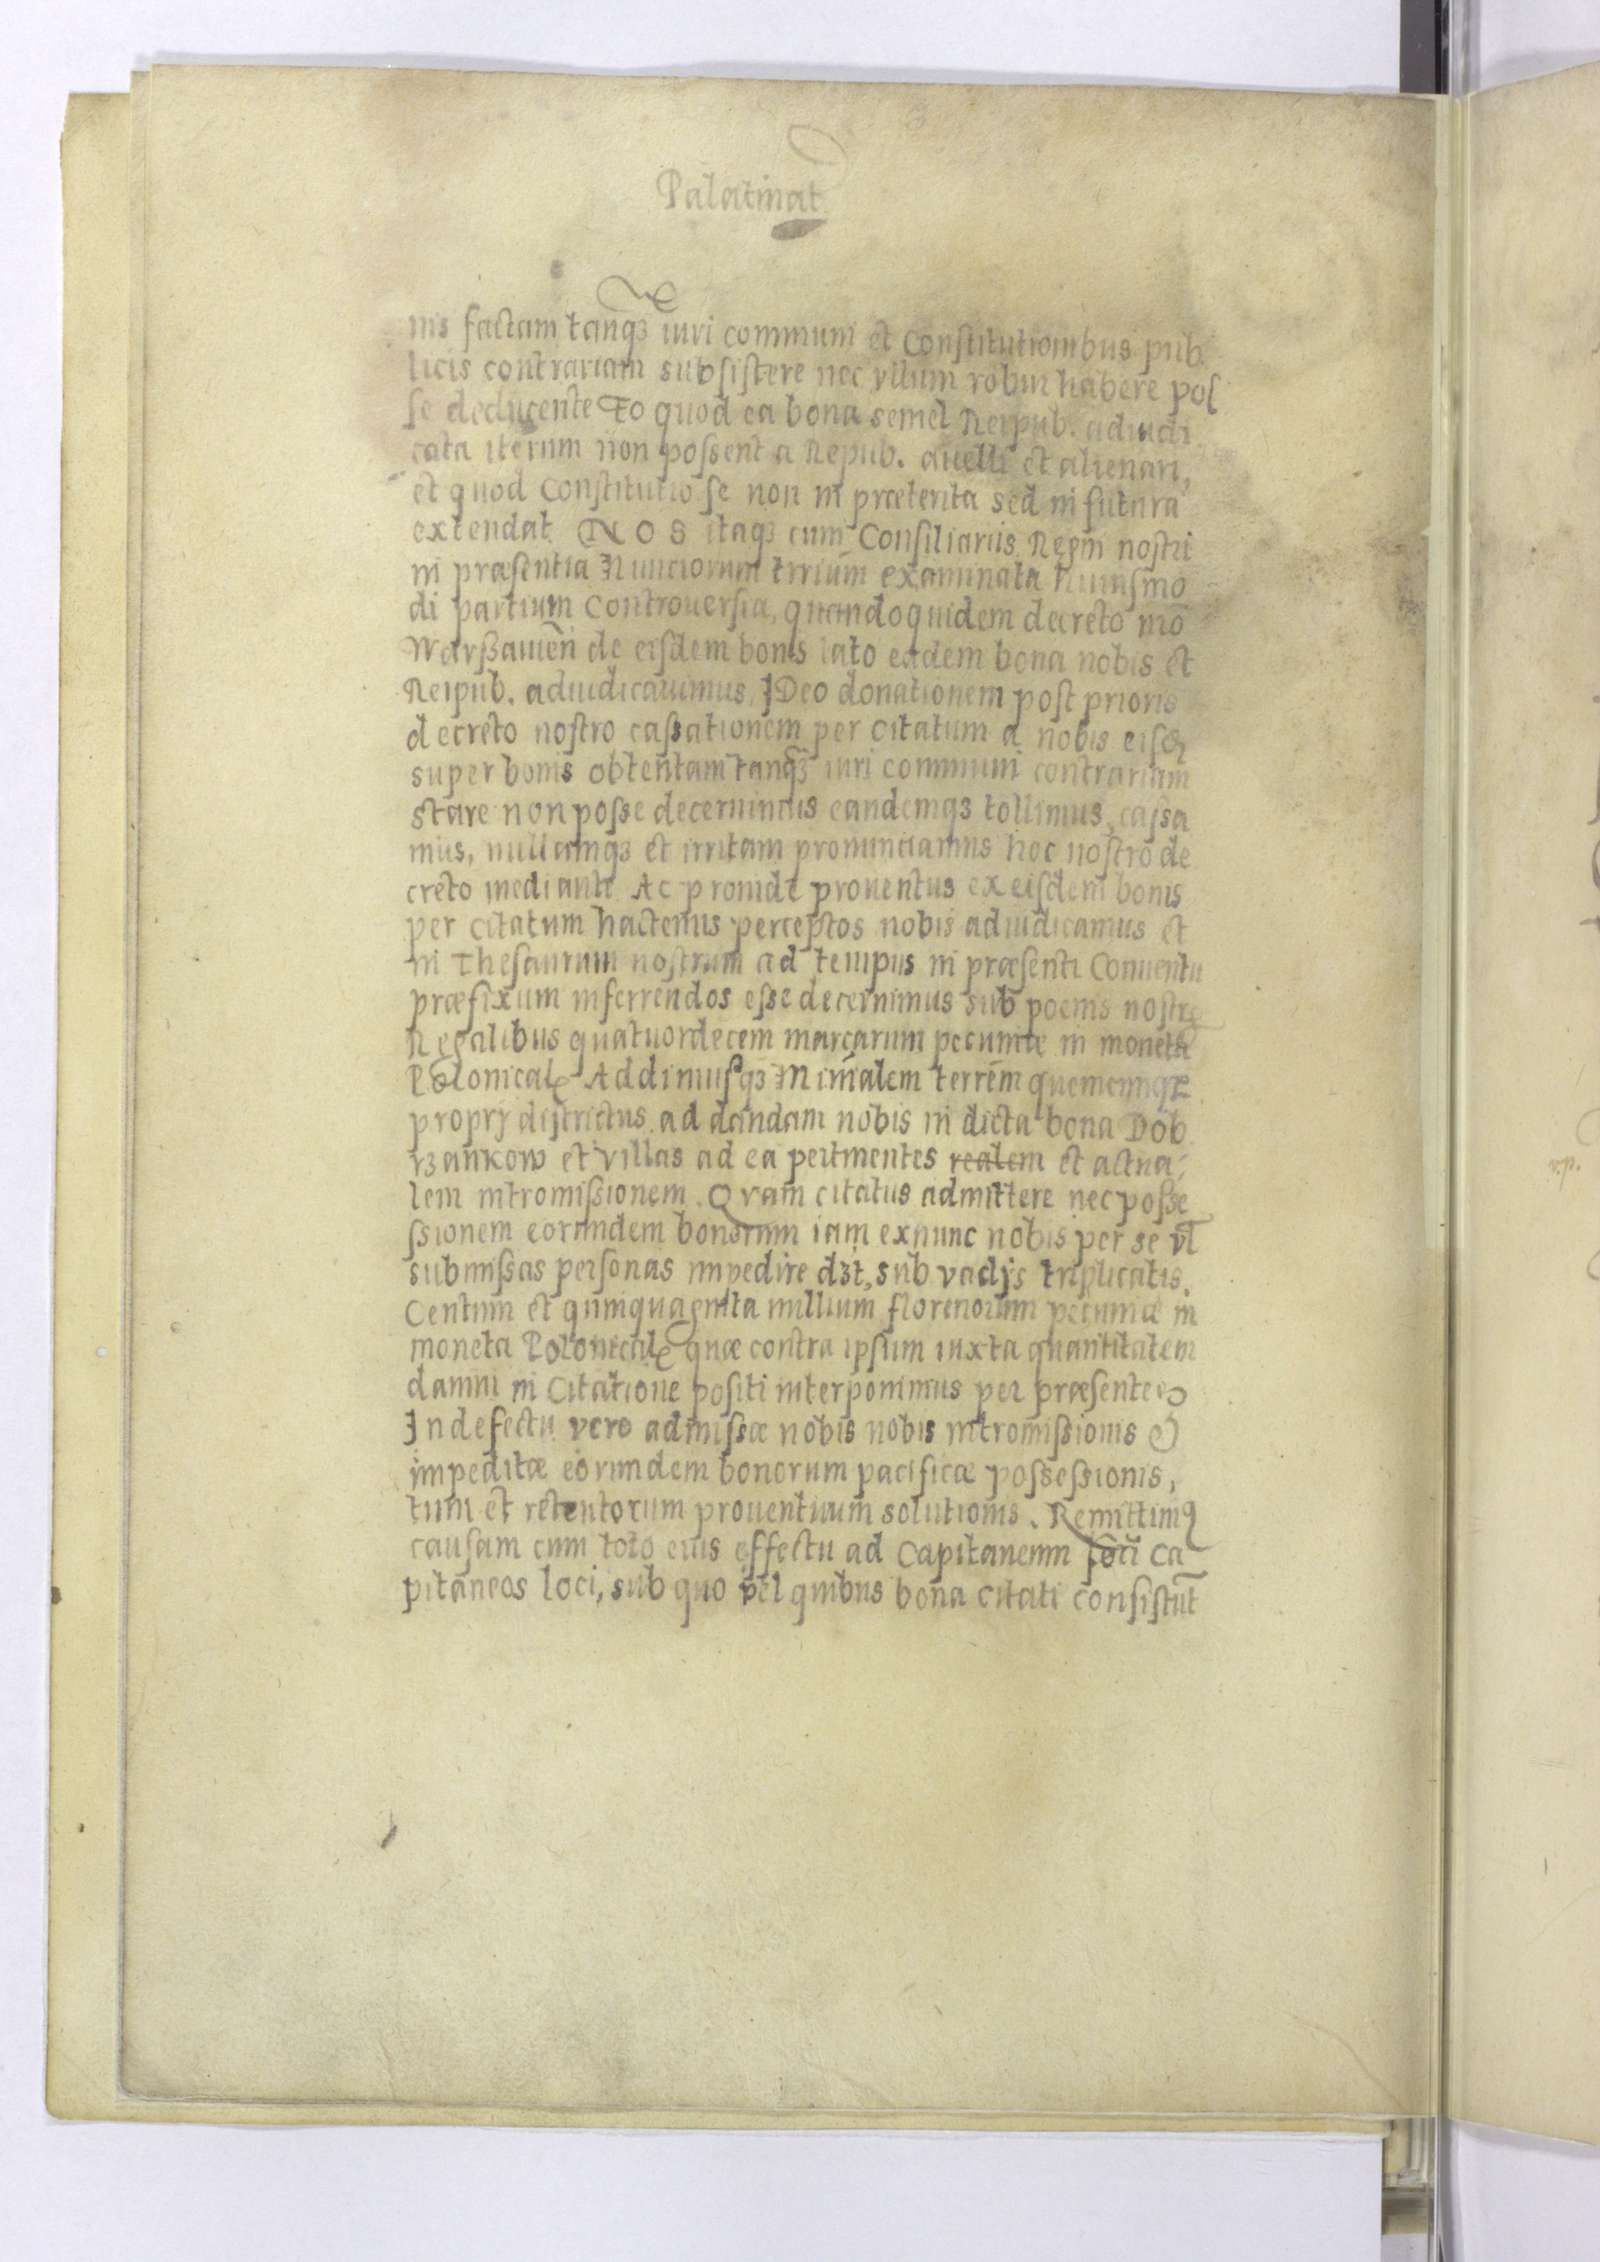 Palatinat
nis factam tanqꝫ iuri communi et Constitutionibus pub
licis contrariam subsistere nec vllum robur habere pos
se deducente Eo quod ea bona semel Reipub. adiudi
cata iterum non possent a Repub. auelli et alienari,
et quod Constitutio se non in præterita sed in futura
extendat NOS itaqꝫ cum Consiliariis Regni nostri
in præsentia Nunciorum trrium examinata huiusmo
di partium Controuersia, quandoquidem decreto nro
Warßauien̄ de eisdem bonis lato eadem bona nobis et
Reipub. adiudicauimus, IDeo donationem post prioris
decreto nostro cassationem per Citatum a nobis eisd
super bonis obtentam tanqꝫ iuri communi contrariam
stare non posse decernimus eandemqꝫ tollimus, cassa
mus, nullamqꝫ et irritam pronunciamus hoc nostro de
creto mediante Ac proinde prouentus ex eisdem bonis
per Citatum hactenus perceptos nobis adiudicamus et
in Thesaurum nostrum ad tempus in præsenti Conuentu
præfixum inferrendos esse decernimus sub poenis nostrę
Regalibus quatuordecem marcarum pecuniæ in moneta
Polonicalę Addimusqꝫ Mini̅alem terre̅m quemcunqꝫ
proprij districtus ad dandam nobis in dicta bona Dob
rzankow et villas ad ea pertinentes realem et actua,
lem intromissionem. Qvam citatus admittere nec posse
ssionem eorundem bonorum iam exnunc nobis per se vl
submissas personas impedire dꝫt, sub vadijs triplicatis.
Centum et quinquaginta millium florenorum pecuniæ in
moneta Polonicalę quæ contra ipsum iuxta quantitatem
damni in Citatione positi interponimus per præsentes
In defectu vero admissæ nobis nobis intromissionis &
impeditæ eorundem bonorum pacificæ possessionis,
tum et retentorum prouentuum solutionis. Remittimꝰ
causam cum toto eius effectu ad Capitaneum loci Ca
pitaneos loci, sub quo vel quibus bona Citati consistūt